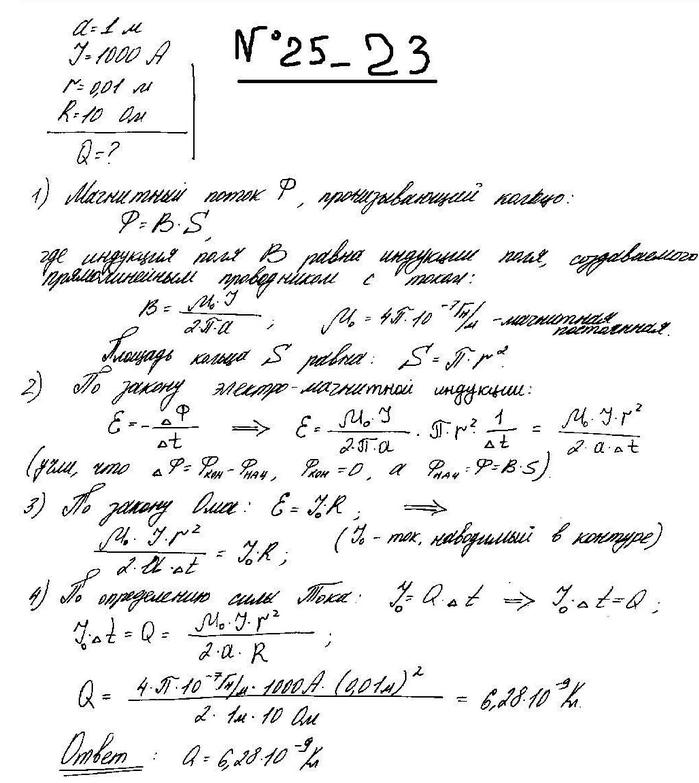 a=1 м
J=1000 А
r=0,01 м
R=10 Ом
Q=?
N°25-23
1) Магнитный поток Ф, пронизывающий кольцо:
Ф=B·S,
где индукция поля B равна индукции поля, создаваемого
прямолинейным проводником с током:
B = M₀·J / 2·П·a ; M₀ = 4П·10⁻⁷ Гн/м - магнитная постоянная.
Площадь кольца S равна: S=П·r².
2) По закону электро-магнитной индукции:
Ɛ = - ΔФ / Δt ⟹ Ɛ = M₀·J / 2·П·a · П·r² · 1 / Δt = M₀·J·r² / 2·a·Δt
(учли, что ΔФ = Фкон-Фнач, Фкон=0, а Фнач=Ф=B·S).
3) По закону Ома: Ɛ = J₀·R ; ⟹
M₀·J·r² / 2·a·Δt = J₀·R ; (J₀ - ток, наводимый в контуре)
4) По определению силы тока: J₀=Q·Δt ⟹ J₀·Δt=Q ;
J₀·Δt = Q = M₀·J·r² / 2·a·R ;
Q = 4·П·10⁻⁷ Гн/м·1000А·(0,01м)² / 2·1м·10 Ом = 6,28·10⁻⁹ Кл.
Ответ : Q = 6,28·10⁻⁹ Кл